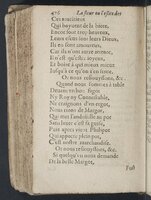 416 La fleur ou l'eslite des
Ces
Qui boyuent de la biere,
Encor sont trop heureux,
Leurs e sont leurs Dieux,
Ils en sont amoureux,
Car ils n'ont autre attente,
Et n'est qu'estre ioyeux,
Et boire à qui mieux mieux
Iusqu'à ce qu'on s'en sente,
Or nous resiouyssons, &c.
Quand nous sommes à table
Deuant vn bon fagot
Ny Roy ny Connestable,
Ne craignons d'vn ergot,
Nous irons chez Margot,
Qui met l'andoüille au pot
Sans lauer c'est sa guise,
Puis apres vient Philipot
Qui apporte plein pot,
C'est nostre marchandise.
Or nous resiouyssons, &c.
Si quelqu'vn nous demande
De la belle Margot,